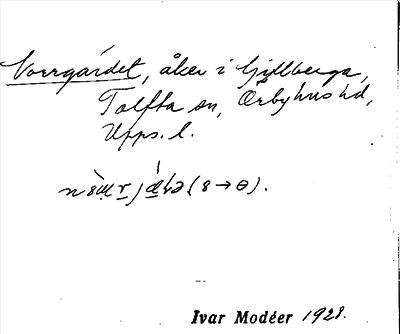 Norrgärdet, åker i Gillberga,
Tolfta sn, Örbyhus hd,
Upps. l.
Ivar Modéer 1928.